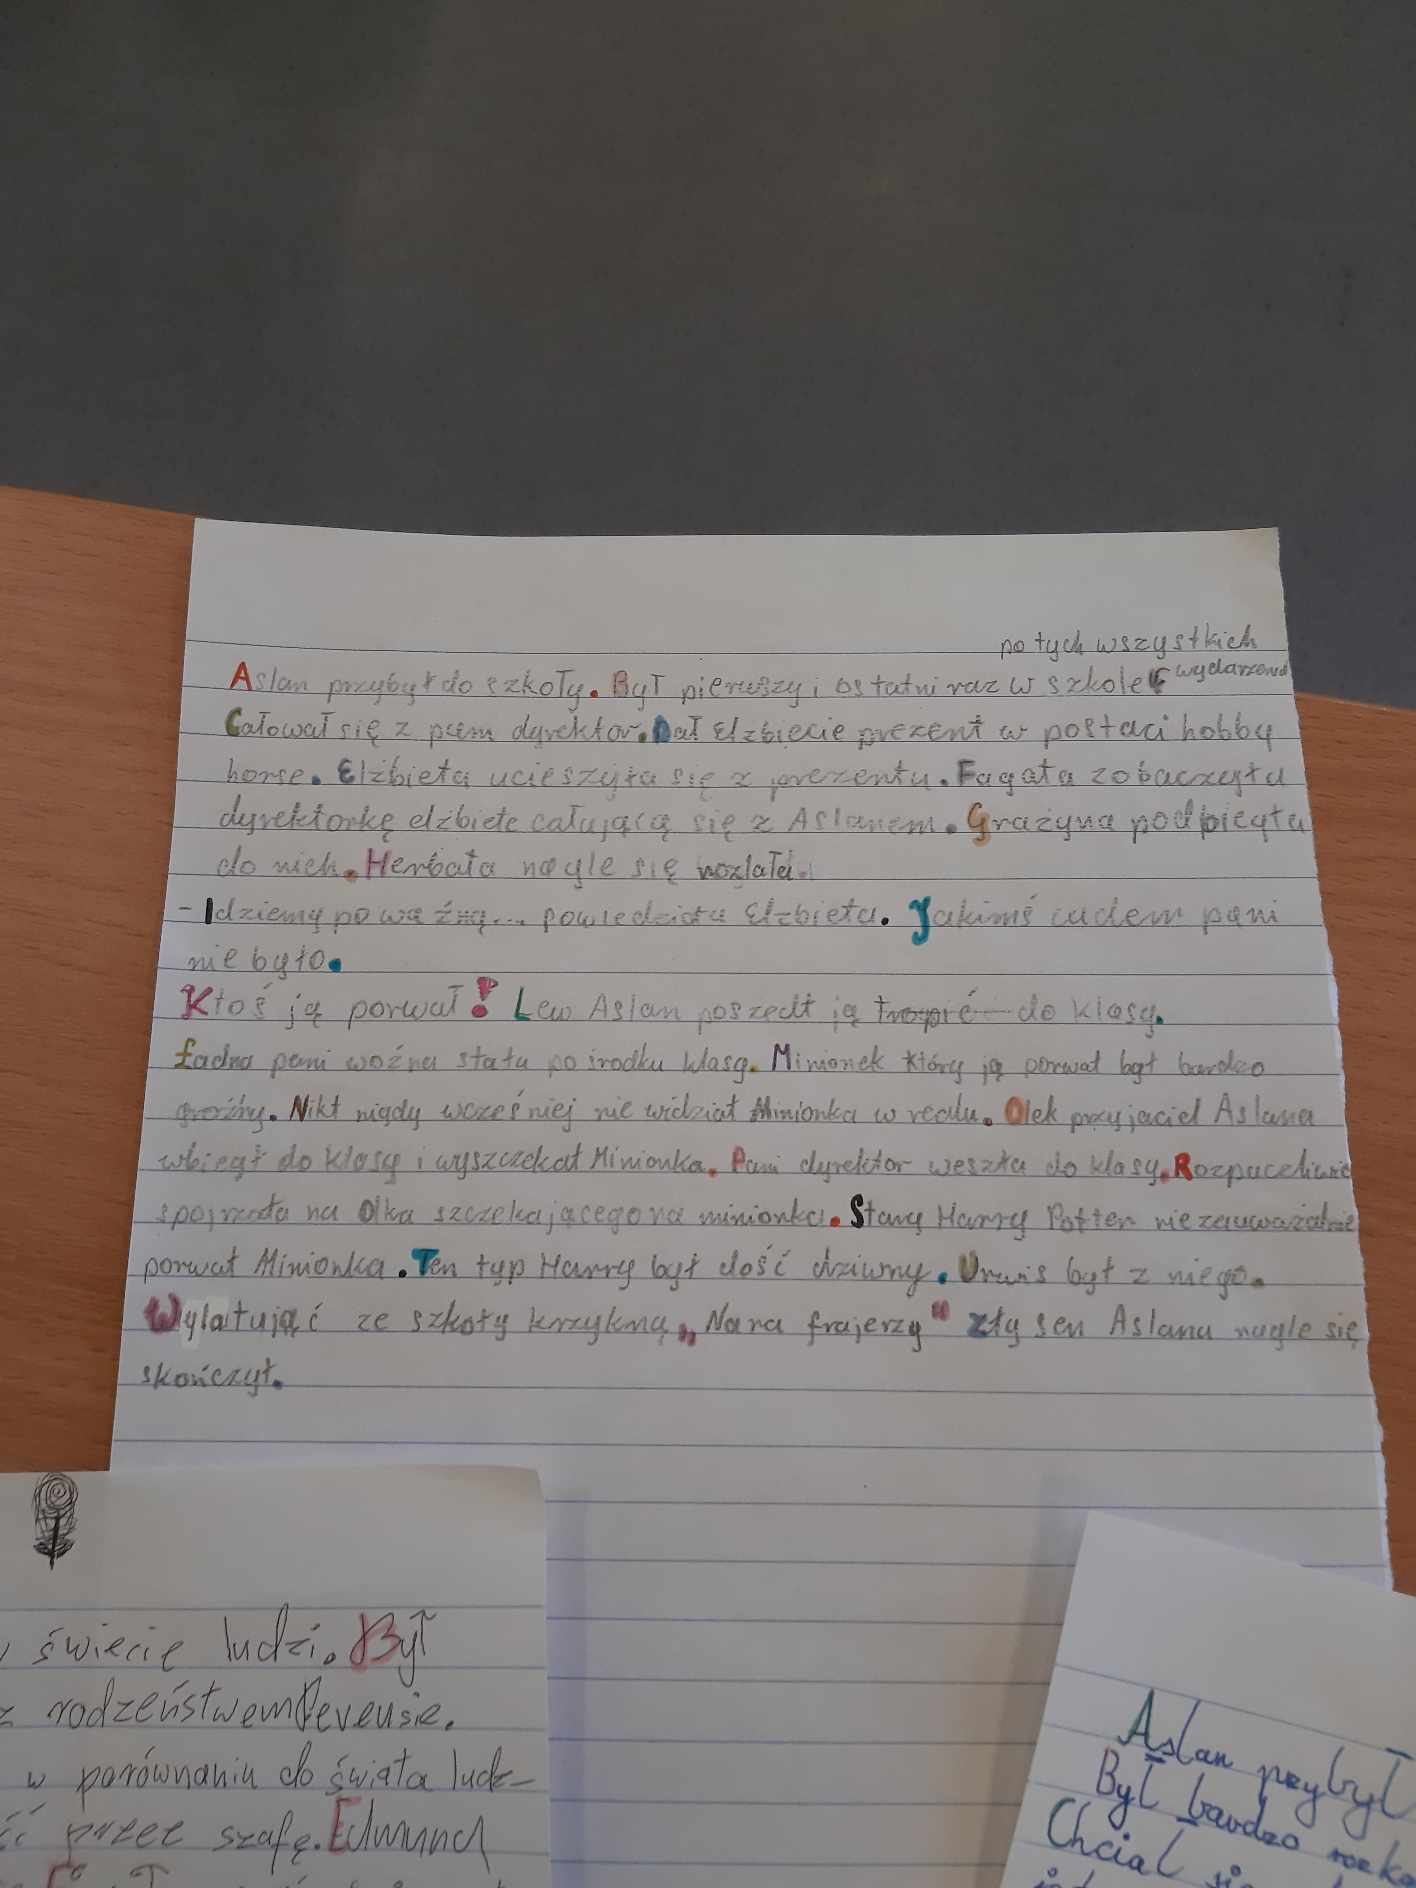 po tych wszystkich
Aslan przybył do szkoły. Był pierwszy i ostatni raz w szkole wydarzeniach
Całował się z panem dyrektor. Dał Elżbiecie prezent w postaci hobby
horse. Elżbieta ucieszyła się z prezentu. Fagata zobaczyła
dyrektorkę elżbiete całującą się z Aslanem. Grażyna podbiegła
do nich. Herbata nagle się rozlała.
- Idziemy po ważną... powiedziała Elżbieta. Jakimś cudem pani
nie było.
Ktoś ją porwał! Lew Aslan poszedł ją tropić do klasy.
Ładna pani woźna stała po środku klasy. Minionek który ją porwał był bardzo
groźny. Nikt nigdy wcześniej nie widział Minionka w realu. Olek przyjaciel Aslana
wbiegł do klasy i wyszczekał Minionka. Pani dyrektor weszła do klasy. Rozpaczliwie
spojrzała na Olka szczekającego na minionka. Stary Harry Potter niezauważalnie
porwał Minionka. Ten typ Harry był dość dziwny. Urwis był z niego.
Wylatująć ze szkoły krzykną „Nara frajerzy" zły sen Aslana nagle się
skończył.
świecie ludzi. Był
z rodzeństwem Pevensie.
w porównaniu do świata ludz-
przez szafę. Edmund
Aslan przybył
Był bardzo
Chciał